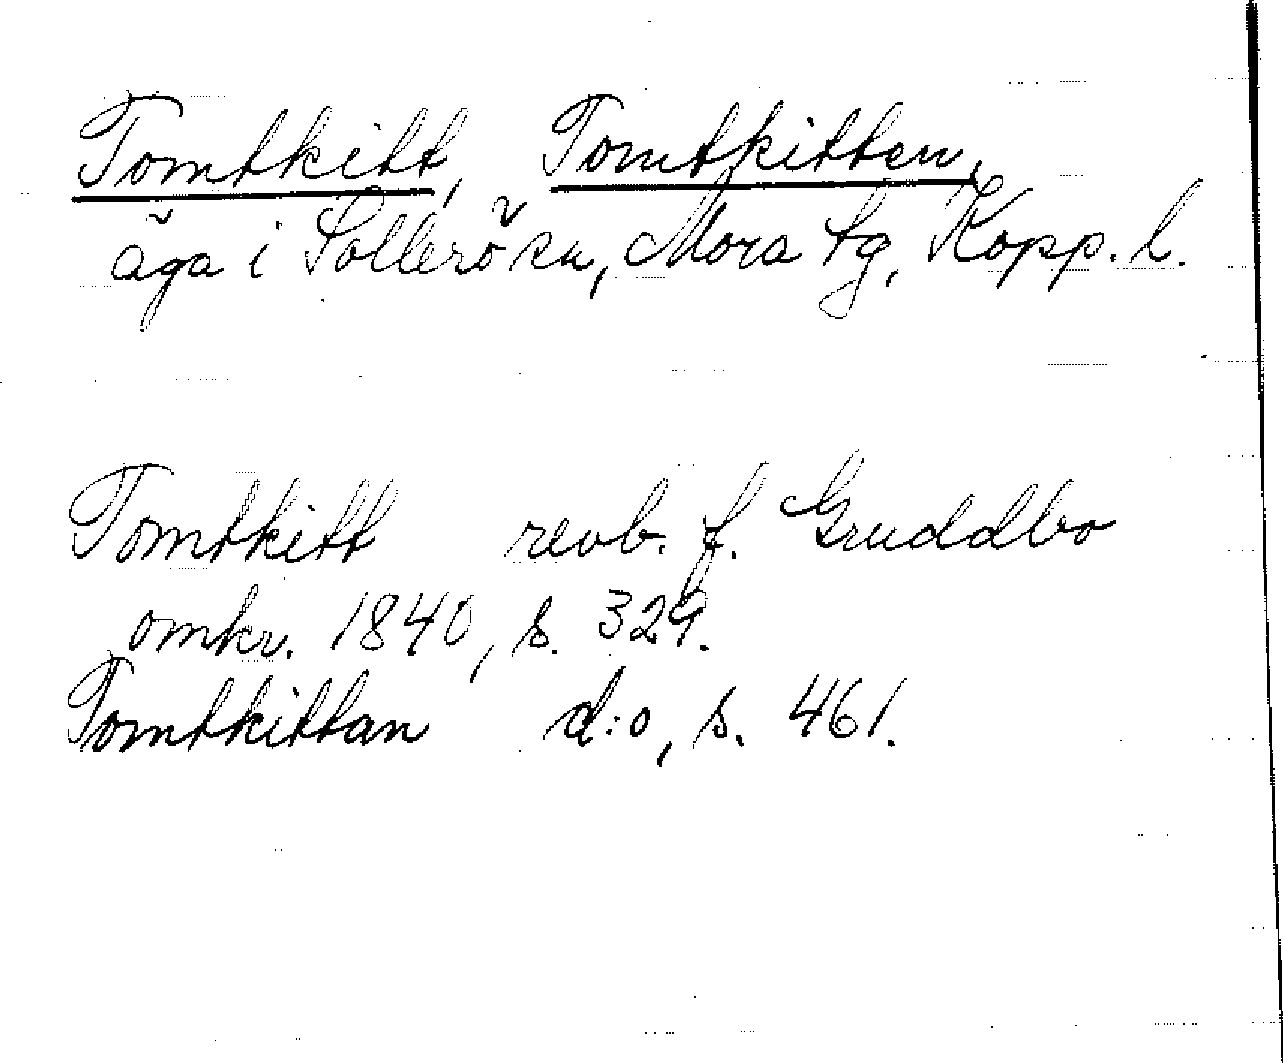 Tomtkitt, Tomtkitten,
äga i Sollerön, Mora tg, Kopp. l.
Tomtkitt revb. f. Gruddbo
omkr. 1840, s. 329.
Tomtkittan d:o, s. 461.